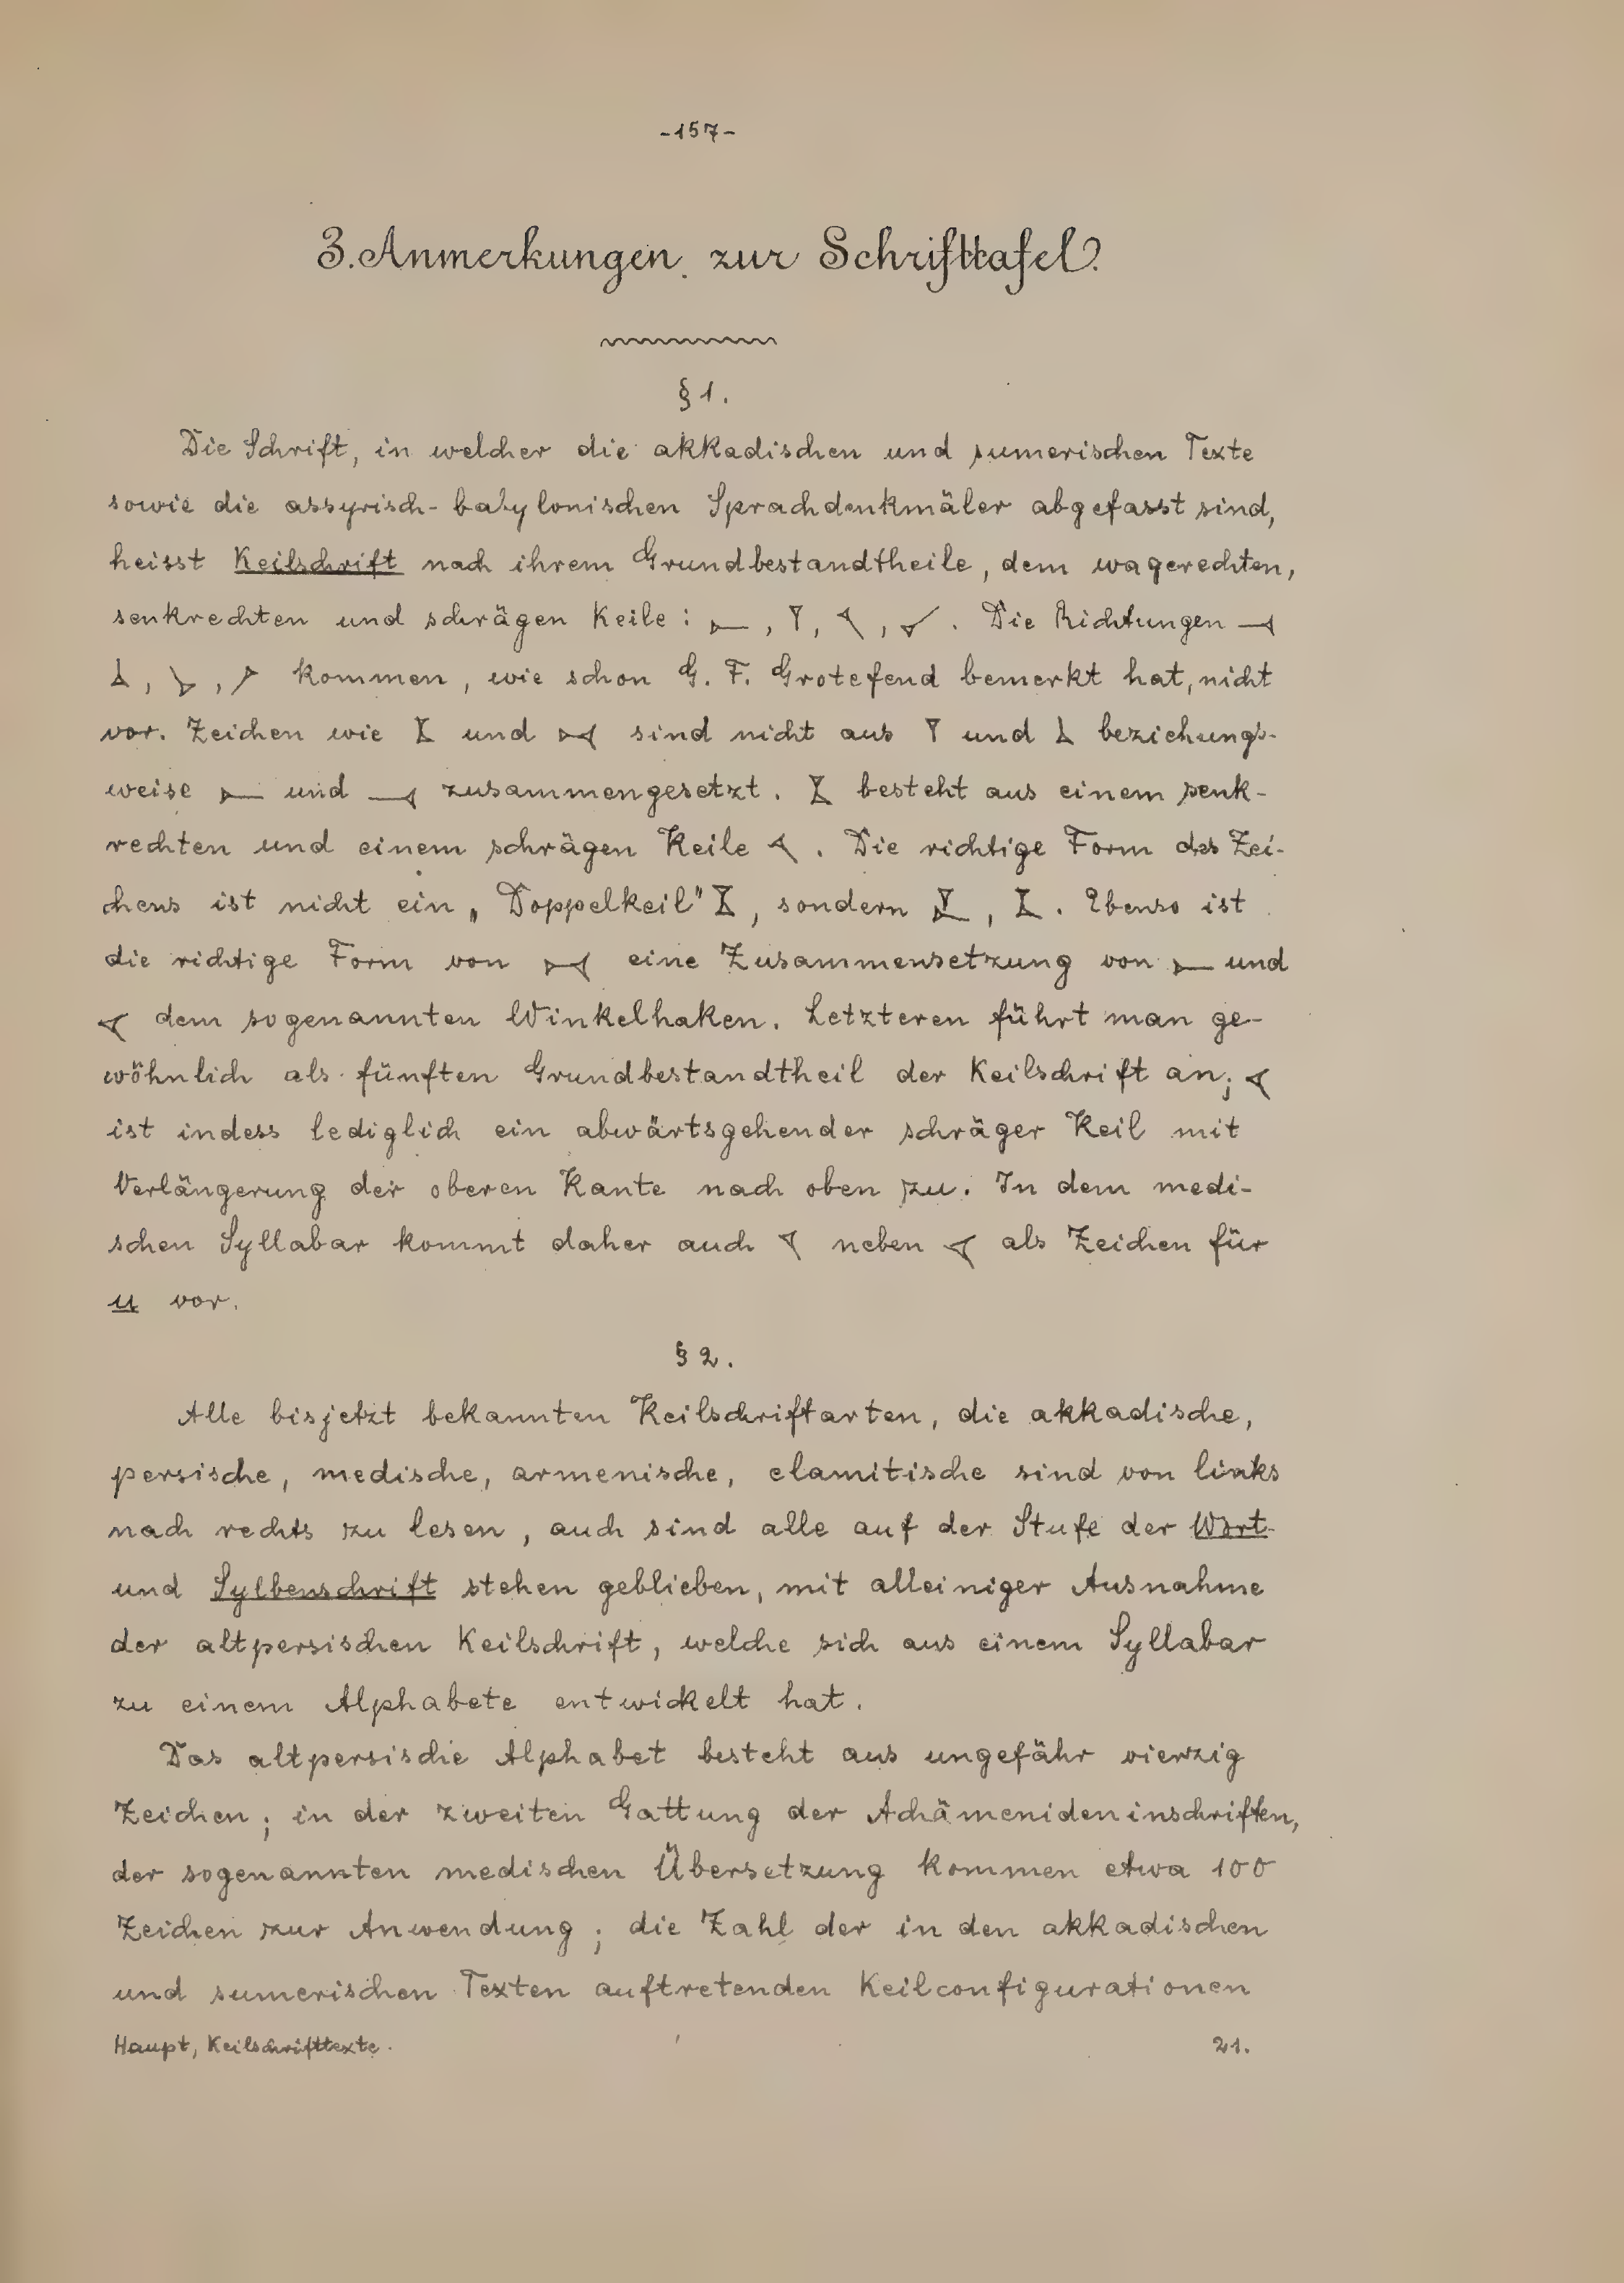 -157-
3. Anmerkungen zur Schrifttafel.
§ 1.
Die Schrift, in welcher die akkadischen und sumerischen Texte
sowie die assyrisch-babylonischen Sprachdenkmäler abgefasst sind,
heisst Keilschrift nach ihrem Grundbestandtheile, dem wagerechten,
senkrechten und schrägen Keile: , , , . Die Richtungen
, , kommen, wie schon G. F. Grotefend bemerkt hat, nicht
vor. Zeichen wie und sind nicht aus und beziehungs-
weise und zusammengesetzt. besteht aus einem senk-
rechten und einem schrägen Keile . Die richtige Form des Zei-
chens ist nicht ein „Doppelkeil" , sondern , . Ebenso ist
die richtige Form von eine Zusammensetzung von und
dem sogenannten Winkelhaken. Letzteren führt man ge-
wöhnlich als fünften Grundbestandtheil der Keilschrift an;
ist indess lediglich ein abwärtsgehender schräger Keil mit
Verlängerung der oberen Kante nach oben zu. In dem medi-
schen Syllabar kommt daher auch neben als Zeichen für
u vor.
§ 2.
Alle bisjetzt bekannten Keilschriftarten, die akkadische,
persische, medische, armenische, elamitische sind von links
nach rechts zu lesen, auch sind alle auf der Stufe der Wort-
und Sylbenschrift stehen geblieben, mit alleiniger Ausnahme
der altpersischen Keilschrift, welche sich aus einem Syllabar
zu einem Alphabete entwickelt hat.
Das altpersische Alphabet besteht aus ungefähr vierzig
Zeichen; in der zweiten Gattung der Achämenideninschriften,
der sogenannten medischen Übersetzung kommen etwa 100
Zeichen zur Anwendung; die Zahl der in den akkadischen
und sumerischen Texten auftretenden Keilconfigurationen
Haupt, Keilschrifttexte. 21.